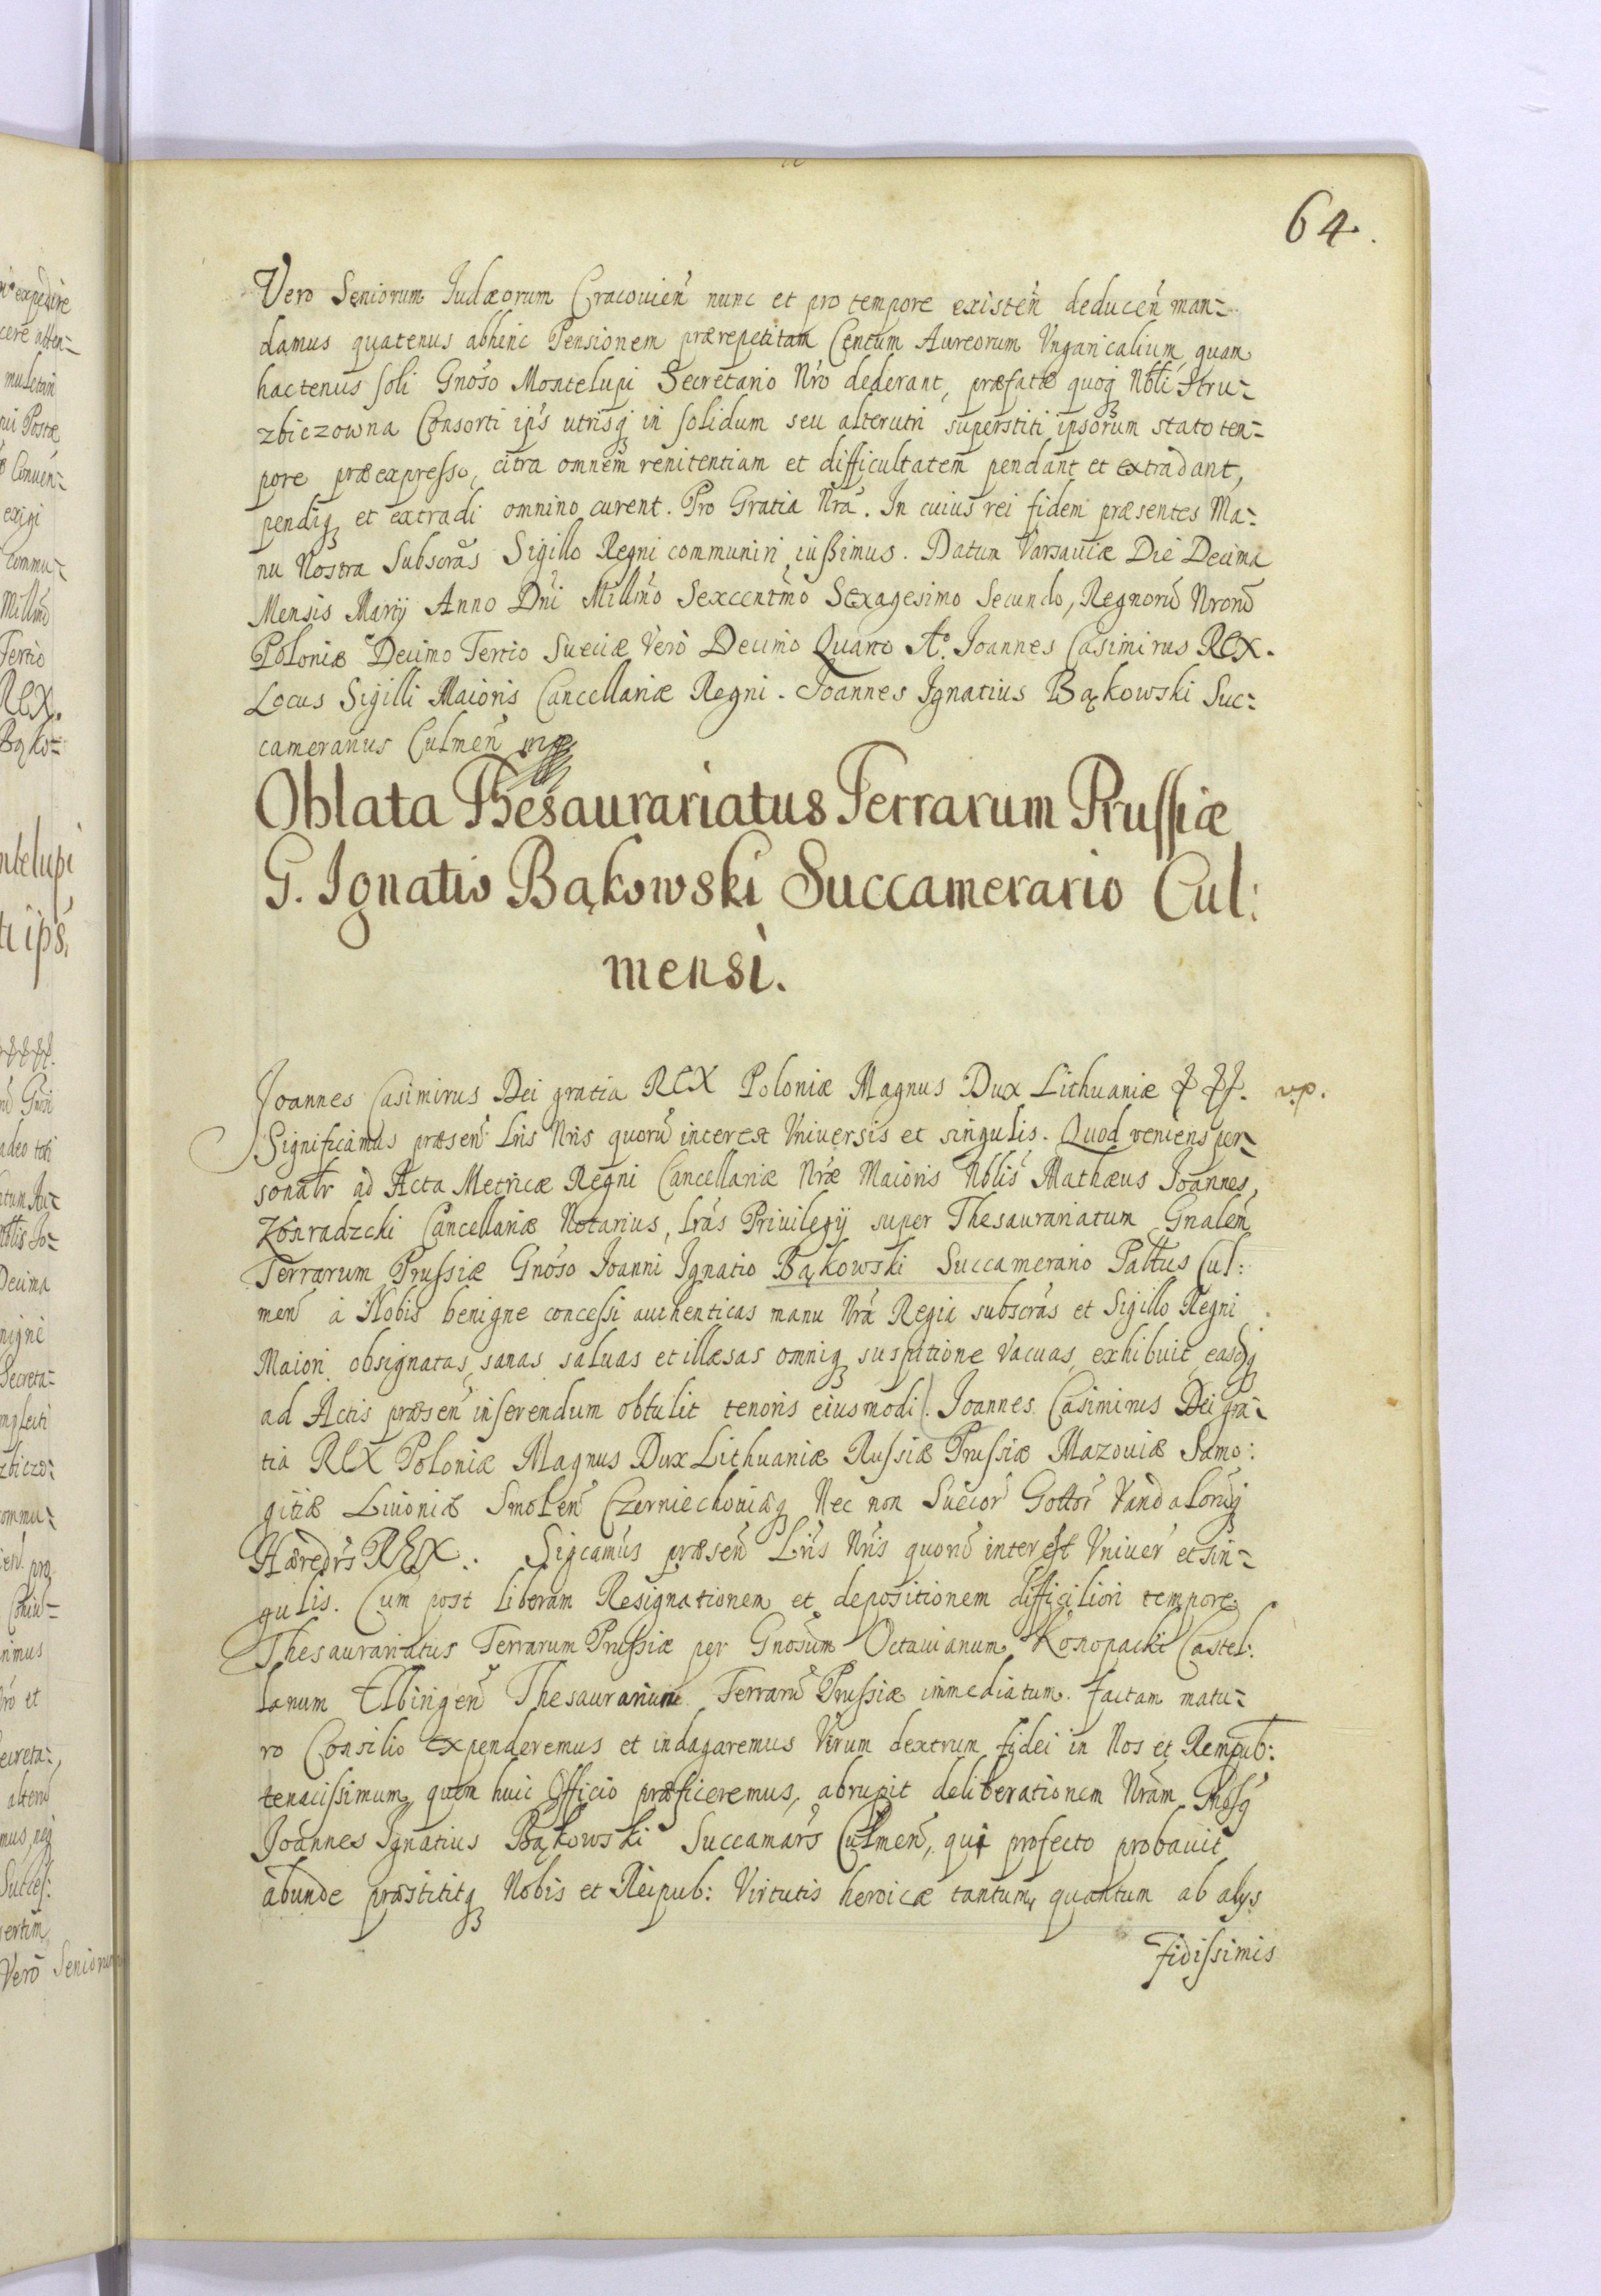 64.
Vero Seniorum Judæorum Cracouien̄ nunc et pro tempore existen̄ deducen̄ man=
damus quatenus abhinc Pensionem præpetitam Centum Aureorum Vngaricalium, quam
hactenus soli Gnōso Montelupi Secretario Nrō dederant, præfatæ quoq̨ Nbli Stru=
zbiczowna Consorti ipīs utrisq̨ in solidum seu alterutri superstiti ipsorum stato tem=
pore præexpresso, citra omnem renitentiam et difficultatem pendant et extradant,
pendiq̨ et extradi omnino curent. Pro Gratia Nrā. In cuius rei fidem præsentes Ma=
nu Nostra Subscrās Sigillo Regni communiri iussimus. Datum Varsauiæ Die Decima
Mensis Martij Anno Dni Millmō Sexcentmō Sexagesimo Secundo, Regnorū Nrorū
Poloniæ Decimo Tertio Sueciæ Verò Decimo Quarto Aº. Joannes Casimirus REX.
Locus Sigilli Maioris Cancellariæ Regni. Joannes Ignatius Bąkowski Suc=
camerarius Culmen̄ mp
Oblata Thesaurariatus Terrarum Prussiæ
G. Ignatio Bąkowski Succamerario Cul:
mensi.
Joannes Casimirus Dei gratia REX Poloniæ Magnus Dux Lithuaniæ & &&. v.p.
Significamus præsen̄ Lris Nris quorū interest Vniversis et singulis. Quod veniens per=
sonalr ad Acta Metricæ Regni Cancellariæ Nræ Maioris Nblis Mathæus Joannes
Konradzcki Cancellariæ Notarius, Lrās Priuilegij super Thesaurariatum Gnalem̄
Terrarum Prussiæ Gnōso Joanni Ignatio Bąkowski Succamerario Paltus Cul:
men̄ à Nobis benigne concessi authenticas manu Nrā Regia subscrās et Sigillo Regni
Maiori obsignatas, sanas saluas et illæsas omniq̨ suspitione vacuas, exhibuit, easdq̨
ad Actis præsen̄ inserendum obtulit tenoris eiusmodi. Joannes Casimirus Dei gra=
tia REX Poloniæ Magnus Dux Lithuaniæ Russiæ Prussiæ Mazouiæ Samo:
gitiæ Liuoniæ Smolen̄ Czerniechouiæq̨ Nec non Suecor̄ Gottor̄ Vandalorūq̨
Hæredrs REX. Sigcamus præsen̄ Lris Nris quorū interest Vniuer̄ et sin=
gulis. Cum post liberam Resignationem et depositionem difficiliori tempore
Thesaurariatus Terrarum Prussiæ per Gnosum Octauianum Konopacki Castel:
lanum Elbingen̄ Thesaurarium Terrarū Prussiæ immediatum factam matu=
ro Consilio Expenderemus et indagaremus Virum dextrum fidei in Nos et Rempub:
tenacissimum, quem huic Officio præficeremus, abrupit deliberationem Nrām Gnosq̨
Joannes Ignatius Bąkowski Succamārs Culmen̄, qui profecto probauit
abunde præstititq̨ Nobis et Reipub: Virtutis heroicæ tantum, quantum ab alijs
Fidissimis